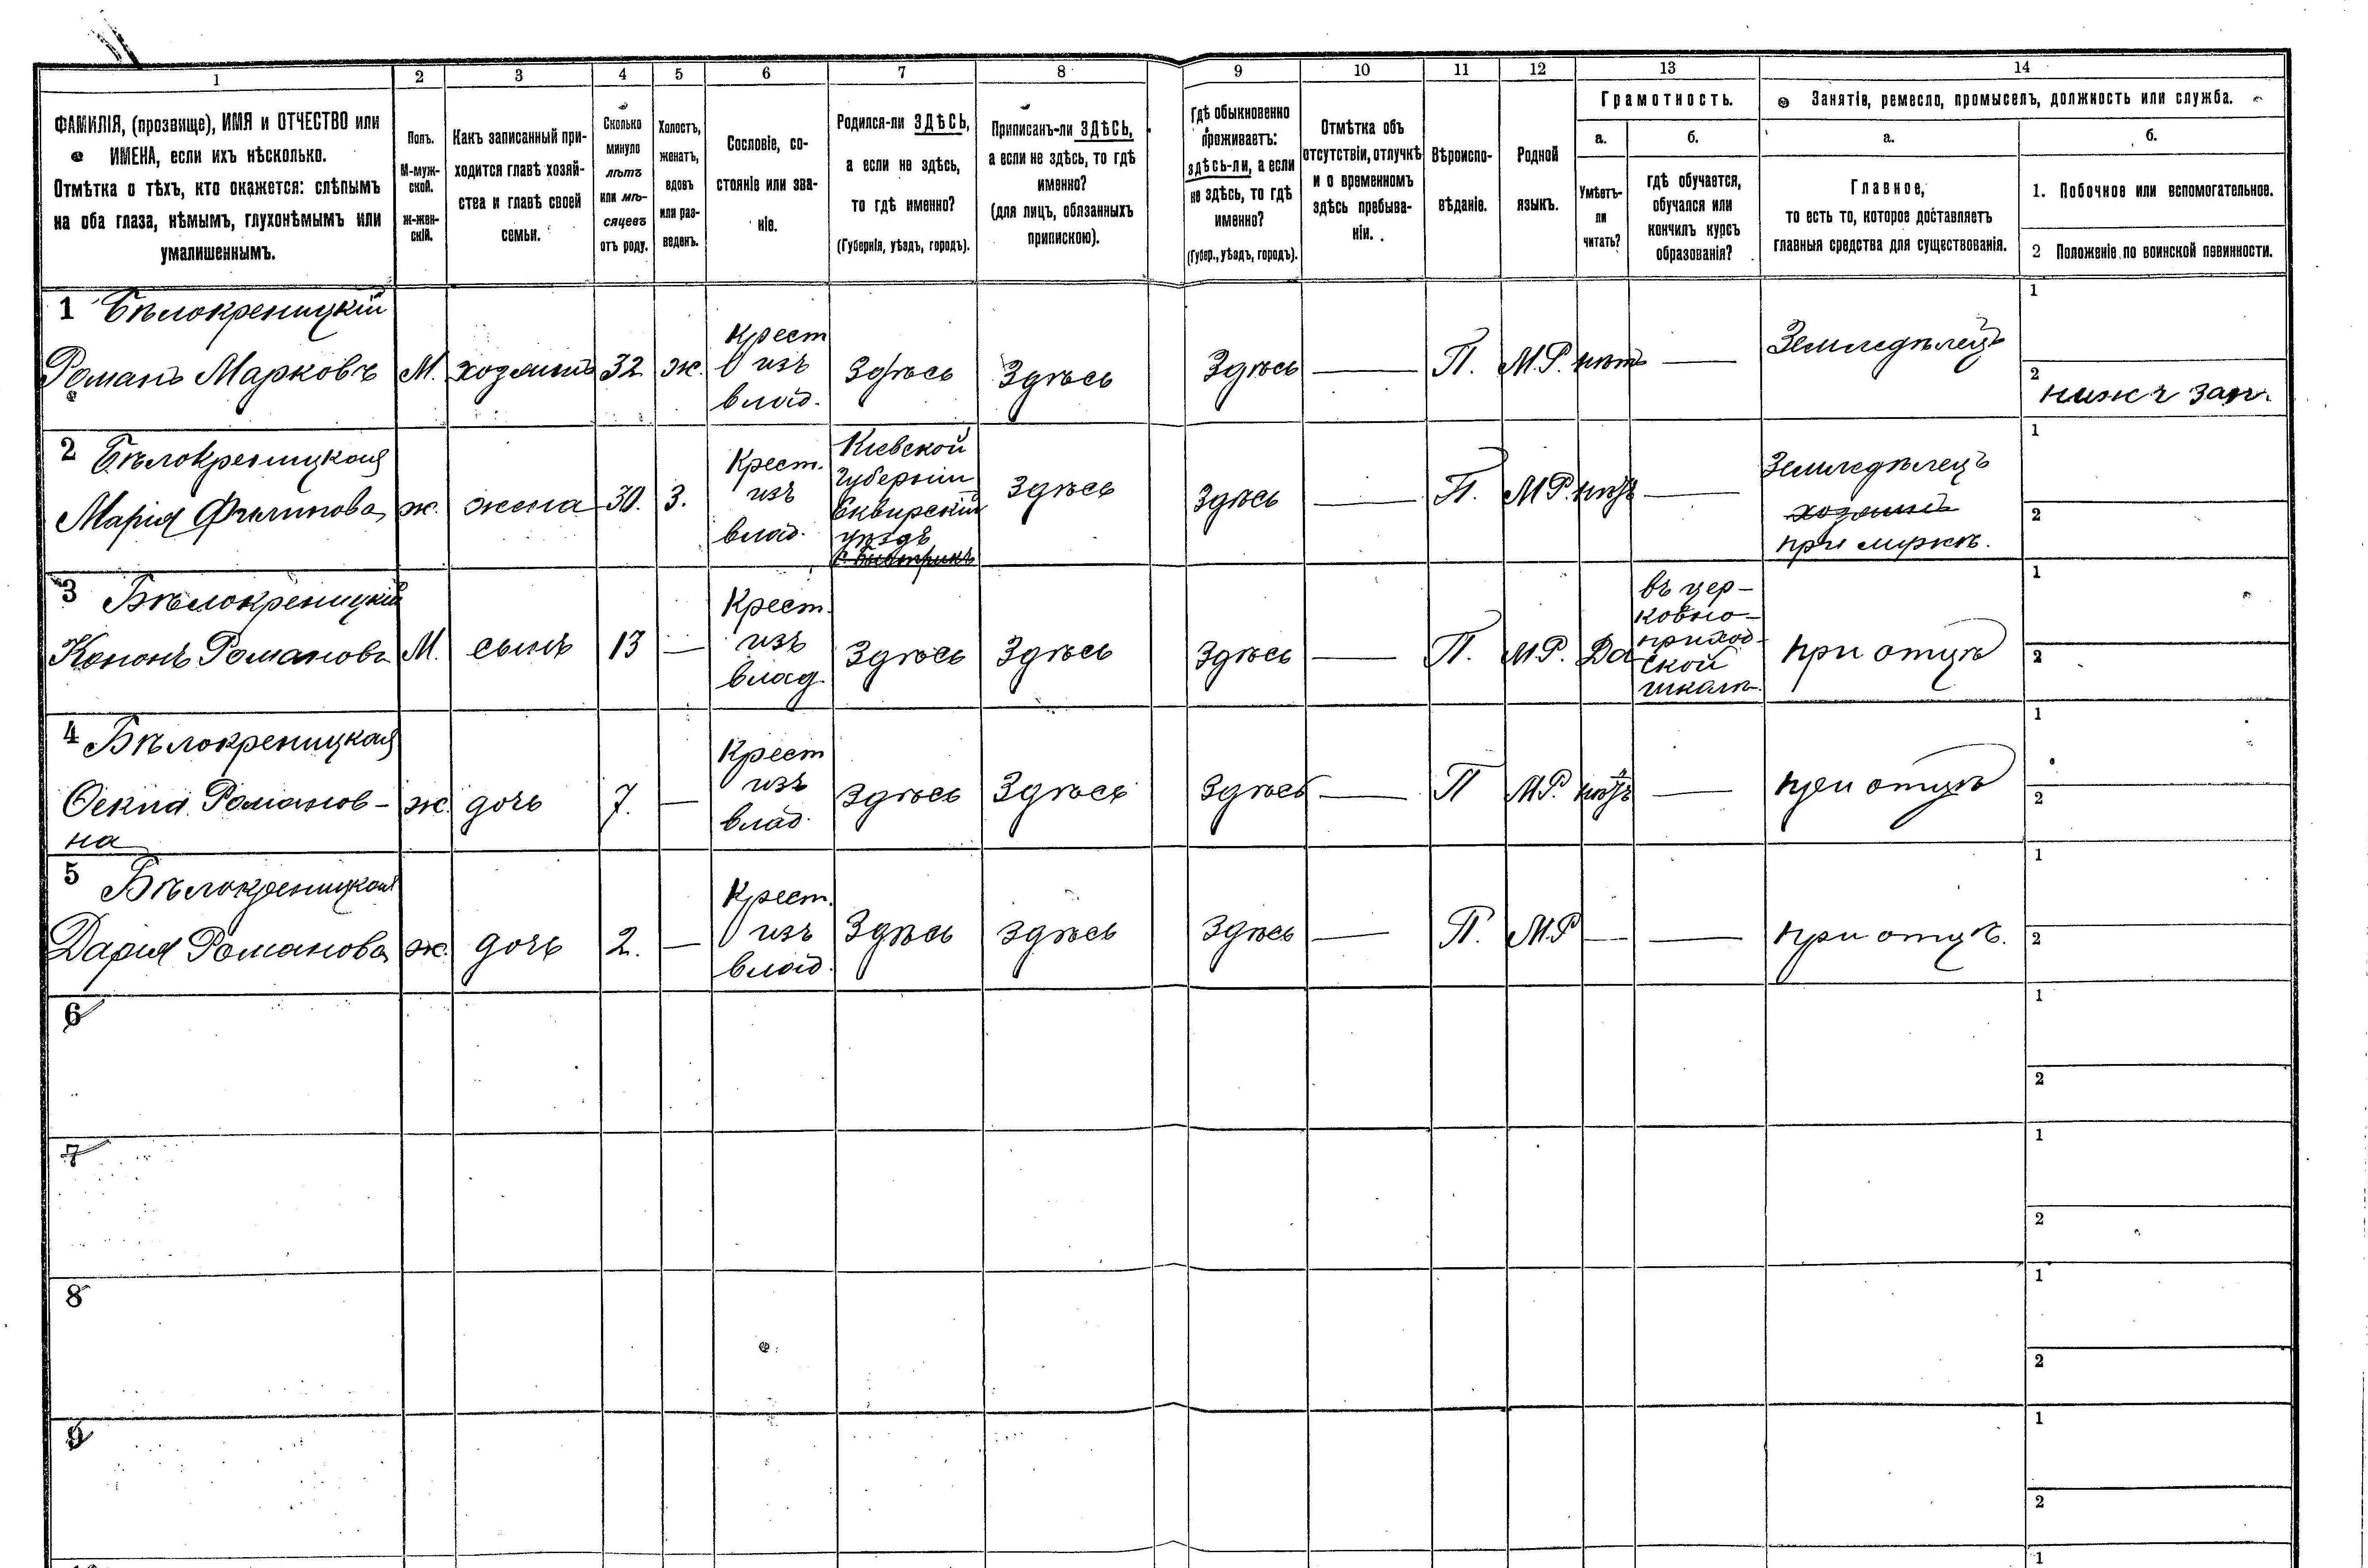 1 2 3 4 5 6 7 8 9 10 11 12 13 14
ФАМИЛІЯ, (прозвище), ИМЯ и ОТЧЕСТВО или
ИМЕНА, если ихъ нѣсколько.
Отмѣтка о тѣхъ, кто окажется: слѣпымъ
на оба глаза, нѣмымъ, глухонѣмымъ или
умалишеннымъ.
Полъ.
М-муж-
ской.
ж-жен-
скій.
Какъ записанный при-
ходится главѣ хозяй-
ства и главѣ своей
семьи.
Сколько
минуло
лѣтъ
или мѣ-
сяцевъ
отъ роду.
Холостъ,
женатъ,
вдовъ
или раз-
веденъ.
Сословіе, со-
стояніе или зва-
ніе.
Родился-ли ЗДѢСЬ,
а если не здѣсь,
то гдѣ именно?
(Губернія, уѣздъ, городъ).
Приписанъ-ли ЗДѢСЬ,
а если не здѣсь, то гдѣ
именно?
(для лицъ, обязанныхъ
припискою).
Гдѣ обыкновенно
проживаетъ:
здѣсь-ли, а если
не здѣсь, то гдѣ
именно?
(Губер., уѣздъ, городъ).
Отмѣтка объ
отсутствіи, отлучкѣ
и о временномъ
здѣсь пребыва-
ніи.
Вѣроиспо-
вѣданіе.
Родной
языкъ.
Грамотность.
а.
Умѣетъ-
ли
читать?
б.
гдѣ обучается,
обучался или
кончилъ курсъ
образованія?
Занятіе, ремесло, промыселъ, должность или служба.
а.
Главное,
то есть то, которое доставляетъ
главныя средства для существованія.
б.
1. Побочное или вспомогательное.
2 Положеніе по воинской повинности.
1 Бѣлокреницкій
Романъ Марковъ
М.
хозяинъ
32
ж.
Крест
изъ
влад.
Здѣсь
Здѣсь
Здѣсь
—
П.
М.Р.
нѣтъ
—
Земледѣлецъ
1
2
нижч зап.
2 Бѣлокреницкая
Марія Филипова
ж.
жена
30.
З.
Крест.
изъ
влад.
Кіевской
губерніи
Сквирскій
уѣздъ
с. Быстрикъ
здѣсь
здѣсь
—
П.
М.Р.
нѣтъ
—
Земледѣлецъ
хозяинъ
при мужѣ.
1
2
3 Бѣлокреницкій
Кононъ Романовъ
М.
сынъ
13
—
Крест.
изъ
влад.
Здѣсь
Здѣсь
Здѣсь
—
П.
М.Р.
Да
въ цер-
ковно-
приход-
ской
школѣ.
при отцѣ
1
2
4 Бѣлокреницкая
Романов-
на
ж.
дочь
7.
—
Крест
изъ
влад.
здѣсь
Здѣсь
Здѣсь
—
П
М.Р.
нѣтъ
—
при отцѣ
1
2
5 Бѣлокреницкая
Дарія Романова
ж.
дочь
2.
—
Крест.
изъ
влад.
Здѣсь
здѣсь
здѣсь
—
П.
М.Р
—
—
при отцѣ.
1
2
6
1
2
7
1
2
8
1
2
9
1
2
1